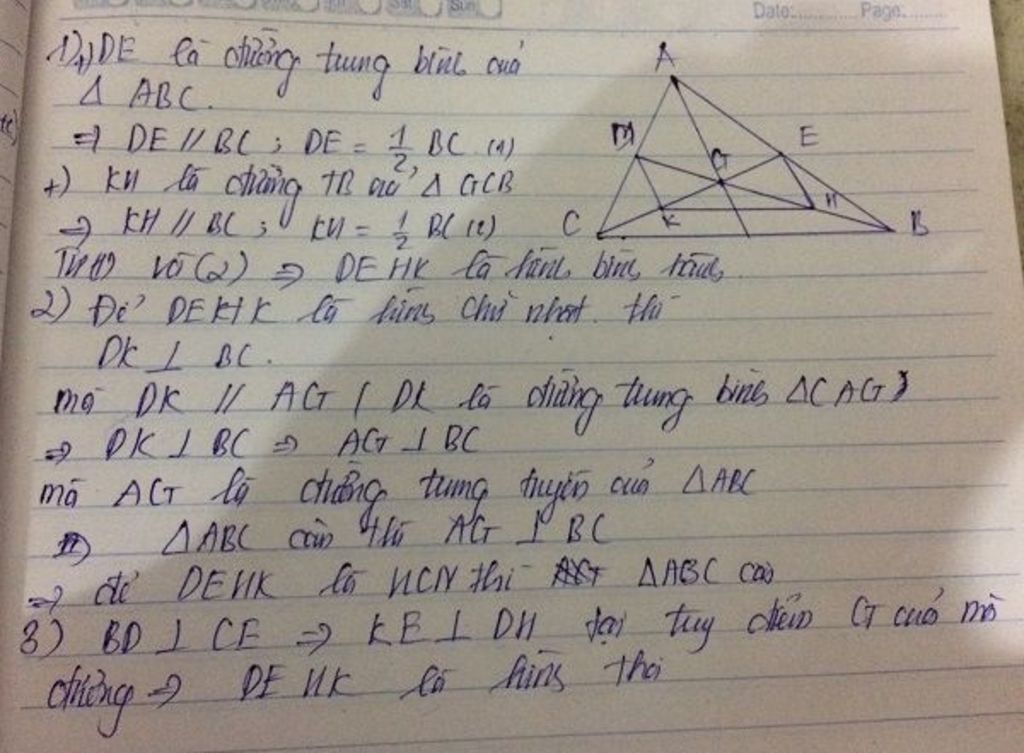 Sat Sun
Date:............ Page:........
1) +) DE là đường trung bình của
Δ ABC.
⇒ DE // BC ; DE = 1/2 BC (1)
+) KH là đường TB của Δ GCB
⇒ KH // BC ; KH = 1/2 BC (2)
Từ (1) và (2) ⇒ DEHK là hình bình hành
2) Để DEHK là hình chữ nhật thì
DK ⊥ BC.
mà DK // AG ( DK là đường trung bình ΔCAG)
⇒ DK ⊥ BC ⇒ AG ⊥ BC
mà AG là đường trung tuyến của ΔABC
⇒ ΔABC cân thì AG ⊥ BC
⇒ để DEHK là HCN thì ΔABC cân
3) BD ⊥ CE ⇒ KE ⊥ DH tại trung điểm G của mỗi
đường ⇒ DEHK là hình thoi
A
D E
G
C K H B